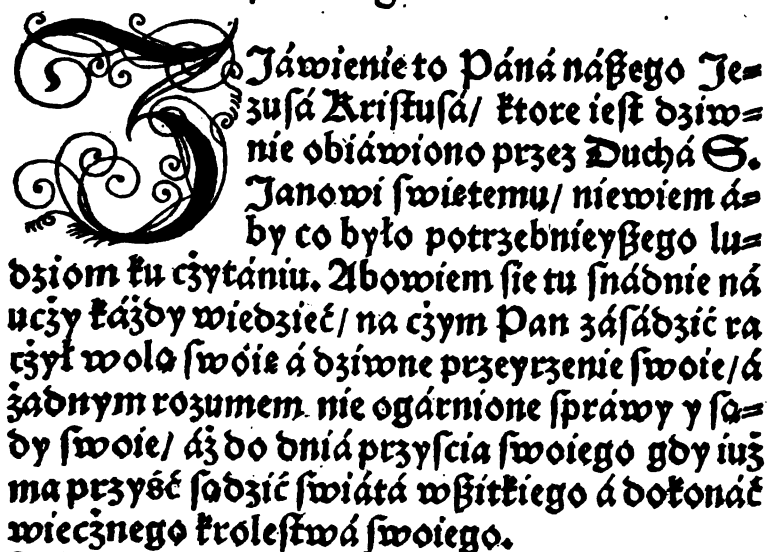 ZJáwienie to Páná nászego Je⸗
zusá Kristusá/ ktore iest dziw⸗
nie obiáwiono przez Duchá S.
Janowi swiętemu/ niewiem á⸗
by co było potrzebnieyszego lu⸗
dziom ku cżytániu. Abowiem sie tu snádnie ná
ucży káżdy wiedzieć/ na cżym Pan zásádzić ra
cżył wolą swóię á dziwne przeyrzenie swoie/ á
żadnym rozumem nie ogárnione spráwy y są⸗
dy swoie/ áż do dniá przyscia swoiego gdy iuż
ma przyść sądzić swiátá wszitkiego á dokonáć
wiecżnego krolestwá swoiego.